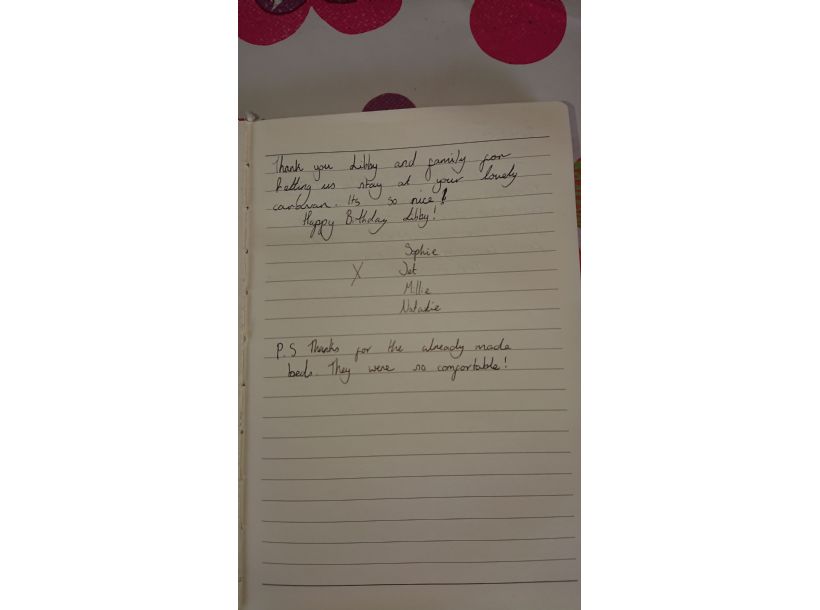 Thank you Libby and family for
letting us stay at your lovely
caravan. Its so nice!
Happy Birthday Libby!
Sophie
X Jet
Millie
Natalie
P.S Thanks for the already made
beds. They were so comfortable!